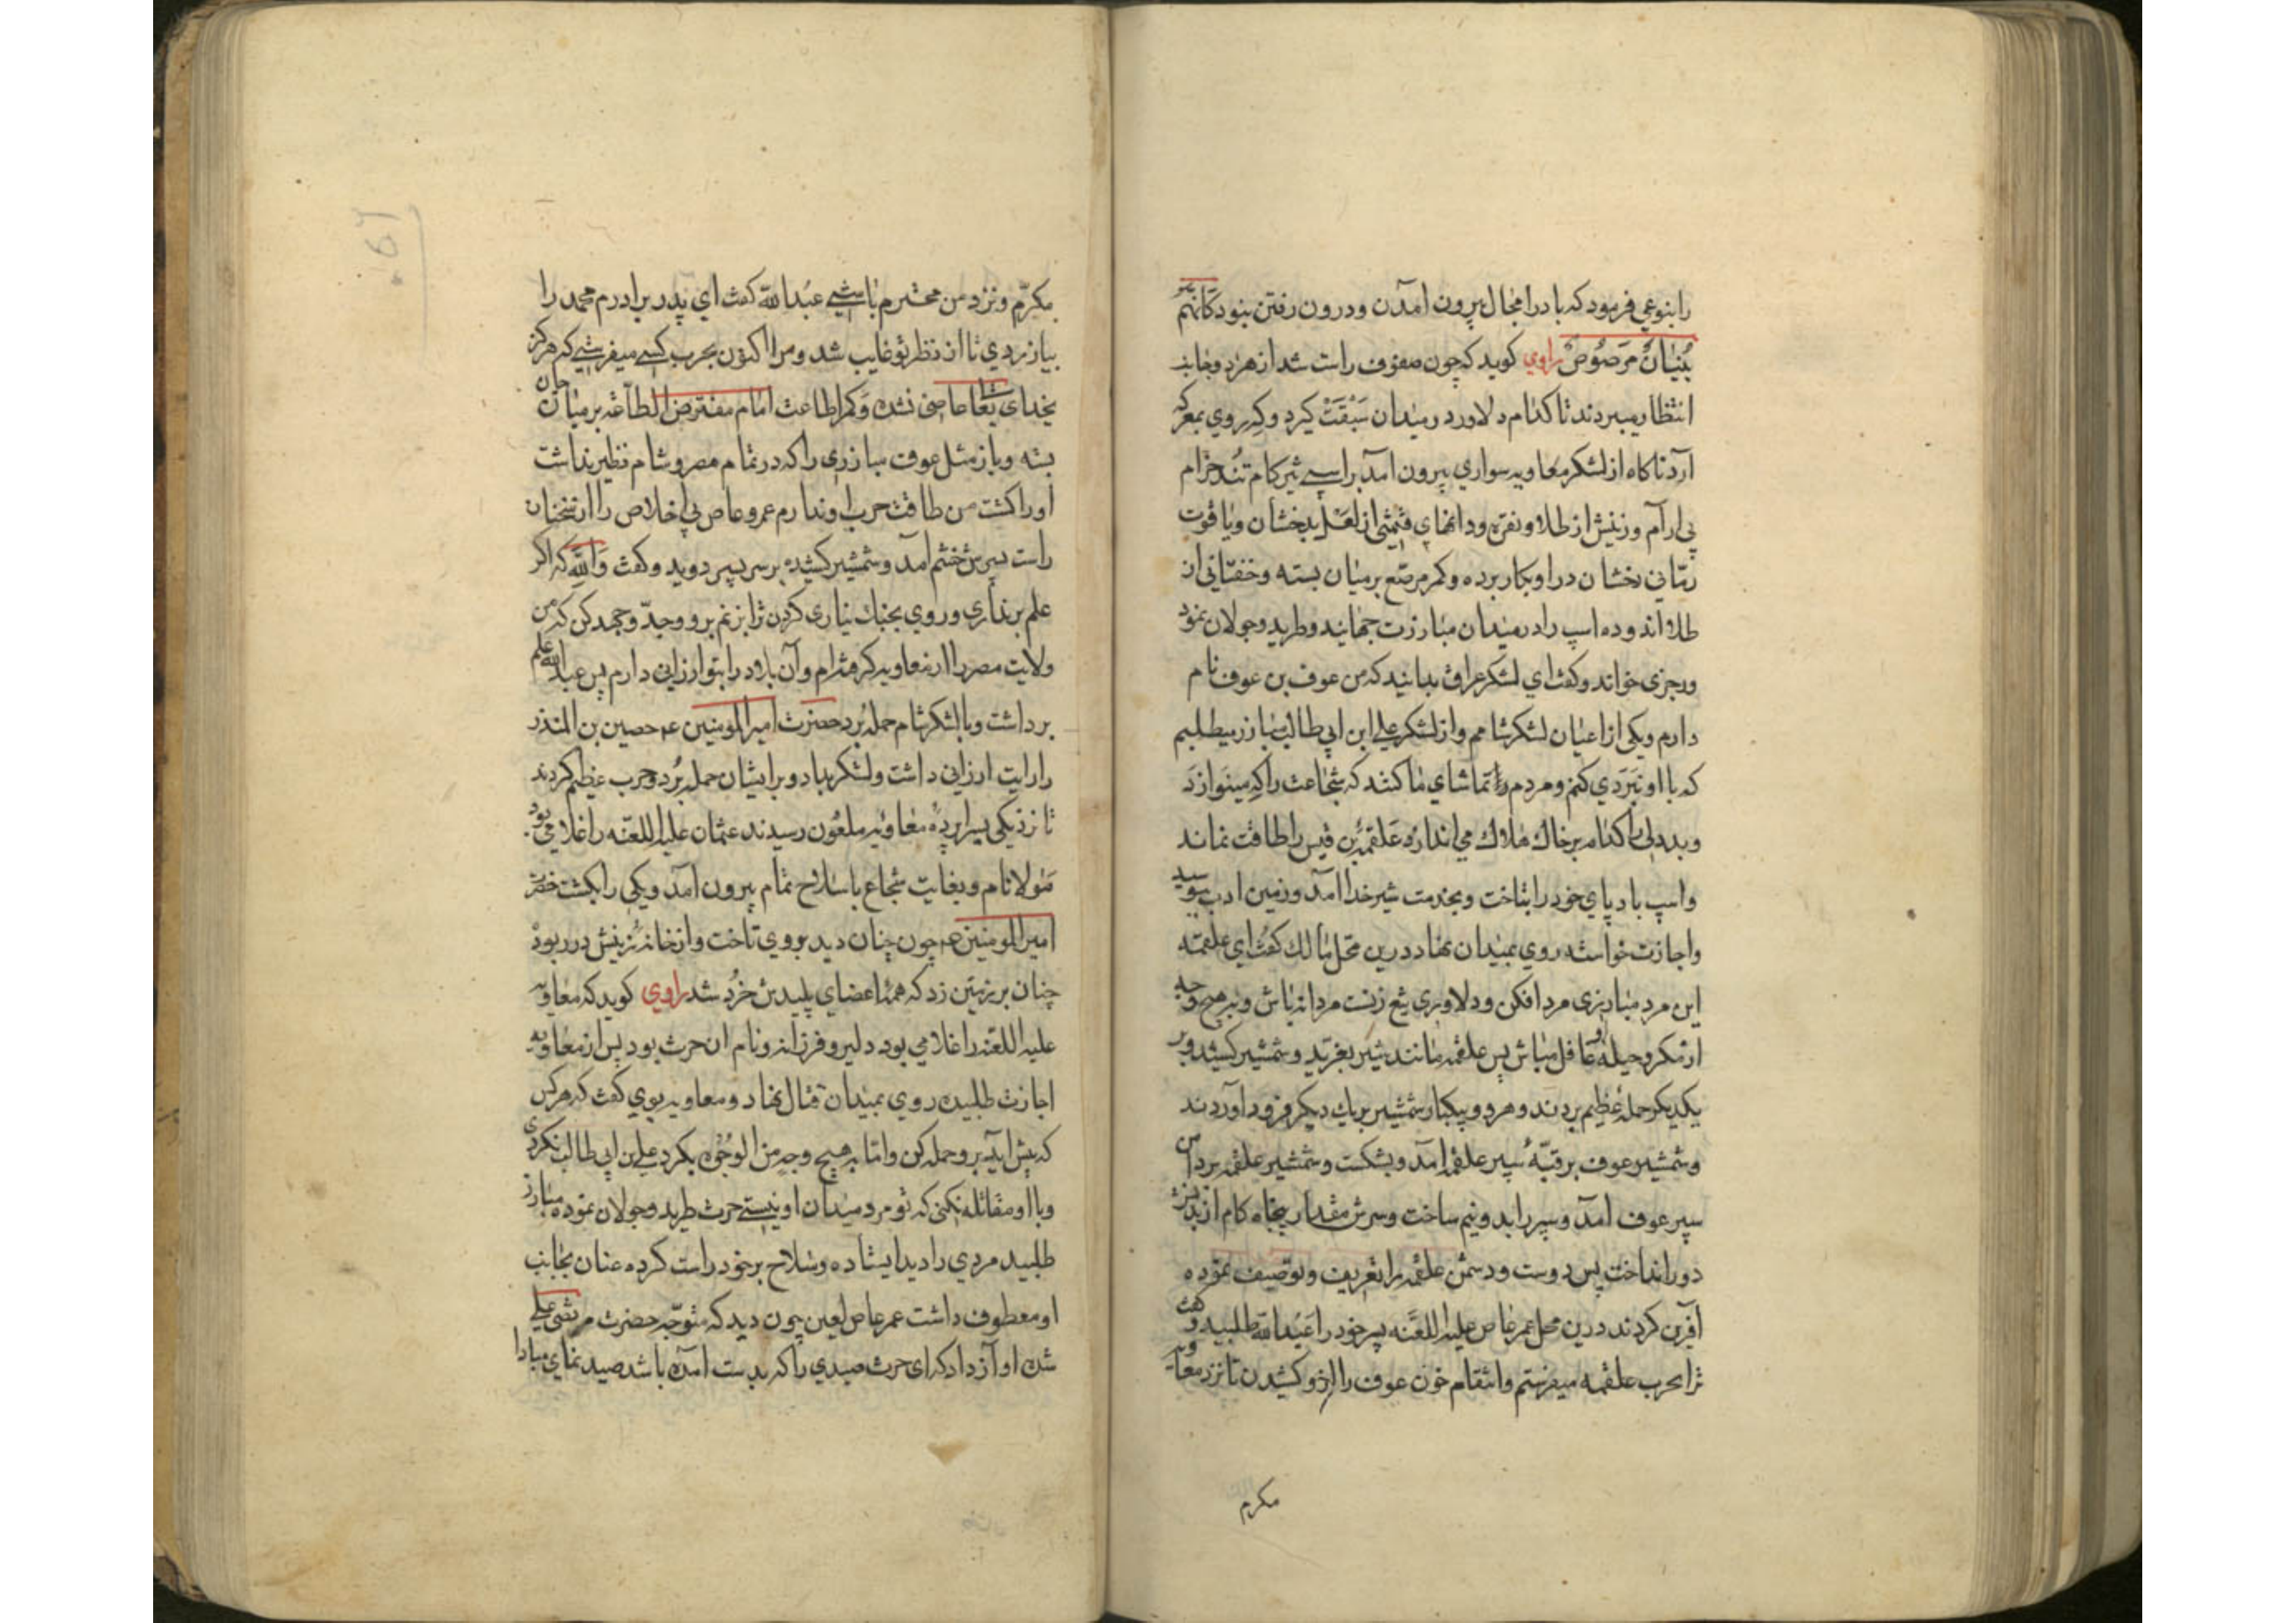 را بنوعی فرمود که باد را مجال بیرون آمدن و درون رفتن نبود کَانّهُم
بُنیَانٌ مَرصُوصٌ راوی کوید که چون صفوف راست شد از هر دو جانب
انتظار میبردند تا کدام دلاور در میدان سَبْقَتْ کیرد و که روی بمعرکه
آرد ناکاه از لشکر معاویه سواری بیرون آمد بر اسپی تیزکام تُند خرام
بی آرام و زینش از طلا و نقره و دانهای قیمتی از لعل بدخشان و یاقوت
رمّانی رخشان در او بکار برده و کمر مرصّع بر میان بسته و خفتانی از
طلا اندوده اسپ را در میدان مبارزت جهانید و طرید و جولان نمود
ورجزی خواند و کفت ای لشکر عراق بدانید که من عوف بن عوف نام
دارم و یکی از اعیان لشکر شامم و از لشکر علی ابن ابی طالب مبارز میطلبم
که با او نبَردی کنم و مردم را تماشای ما کنند که شجاعت را که مینوازد
و بددلی را کدام بر خاک هلاک می اندازد عَلقمهٔ بن قیس را طاقت نماند
و اسپ باد پای خود را بتاخت و بخدمت شیر خدا آمد و زمین ادب ببوسید
و اجازت خواسته روی بمیدان نهاد درین محل مالک کفت ای علقمه
این مرد مبارزی مرد افکن و دلاوری تیغ زنست مردانه باش و بهیچ وجه
از مکر و حیلهٔ او غافل مباش پس علقمه مانند شیر بغرّید و شمشیر کشید و بر
یکدیکر حملهٔ عظیم بردند و هر دو بیکبار شمشیر بر یک دیکر فرود آوردند
و شمشیر عوف بر قبّهٔ سپر علقمه آمد و بشکست و شمشیر علقمه بر دامن
سپر عوف آمد و سپر را بدو نیم ساخت و سرش مقدار پنجاه کام از بدنش
دور انداخت پس دوست و دشمن علقمه را تعریف و توصیف نموده
آفرین کردند درین محل عمر عاص علیه اللعنه پسر خود را عَبدالله طلبید و کفت
ترا بحرب علقمه میفرستم و انتقام خون عوف را از او کشیدن تا نزد معاویه
مکرم
مکرّم و نزد من محترم باشی عبدالله کفت ای پدر برادرم محمد را
بیازردی تا از نظر تو غایب شد و مرا اکنون بحرب کسی میفرستی که هرکز
بخدای تعا عاصی نشده و کمر اطاعت امام مفترض الطاعه بر میان جان
بسته و باز مثل عوف مبازری را که در تمام مصر و شام نظیر نداشت
او را کشت من طاقت حرب او ندارم عمرو عاص بی اخلاص را از سخنان
راست پسرش خشم آمد و شمشیر کشیده بر سر پسر دوید و کفت وَاللّه که اکر
علم برنداری و روی بجنک نیاری کردن ترا بزنم برو وجدّ و جهد کن که من
ولایت مصر را از معاویه کرفته ام و آن بلاد را بتو ارزانی دارم پس عبدالله علم
برداشت و با لشکر شام حمله بُرد حضرت امیر المومنین ع حصین بن المنذر
را رایت ارزانی داشت و لشکر بداد و بر ایشان حمله بُرد و حرب عظیم کردند
تا نزدیکی سراپردهٔ معاویه ملعون رسیدند عثمان علیه اللعنه را غلامی بود
مَولا نام و بغایت شجاع با سلاح تمام بیرون آمد و یکی را بکشت حضرت
امیر المومنین ع چون چنان دید بر وی تاخت و از خانهٔ زینش در ربود
چنان بر زمین زد که همهٔ اعضای پلیدش خُرد شد راوی کوید که معاویه
علیه اللعنه را غلامی بود دلیر و فرزانه و نام ان حرث بود پس از معاویه
اجازت طلبیده روی بمیدان قتال نهاد و معاویه بوی کفت که هر کس
که پیش اید برو حمله کن و امّا به هیچ وجه من الوجوه بکرد علی بن ابی طالب نکردی
و با او مقاتله نکنی که تو مرد میدان او نیستی حرث طرید و جولان نموده مبارز
طلبید مردی را دید ایستاده و سلاح بر خود راست کرده عنان بجانب
او معطوف داشت عمر عاص لعین چون دید که متوجّه حضرت مرتضی علی
شده او آواز داد که ای حرث صیدی را که بدست آمده باشد صید نمای مبادا